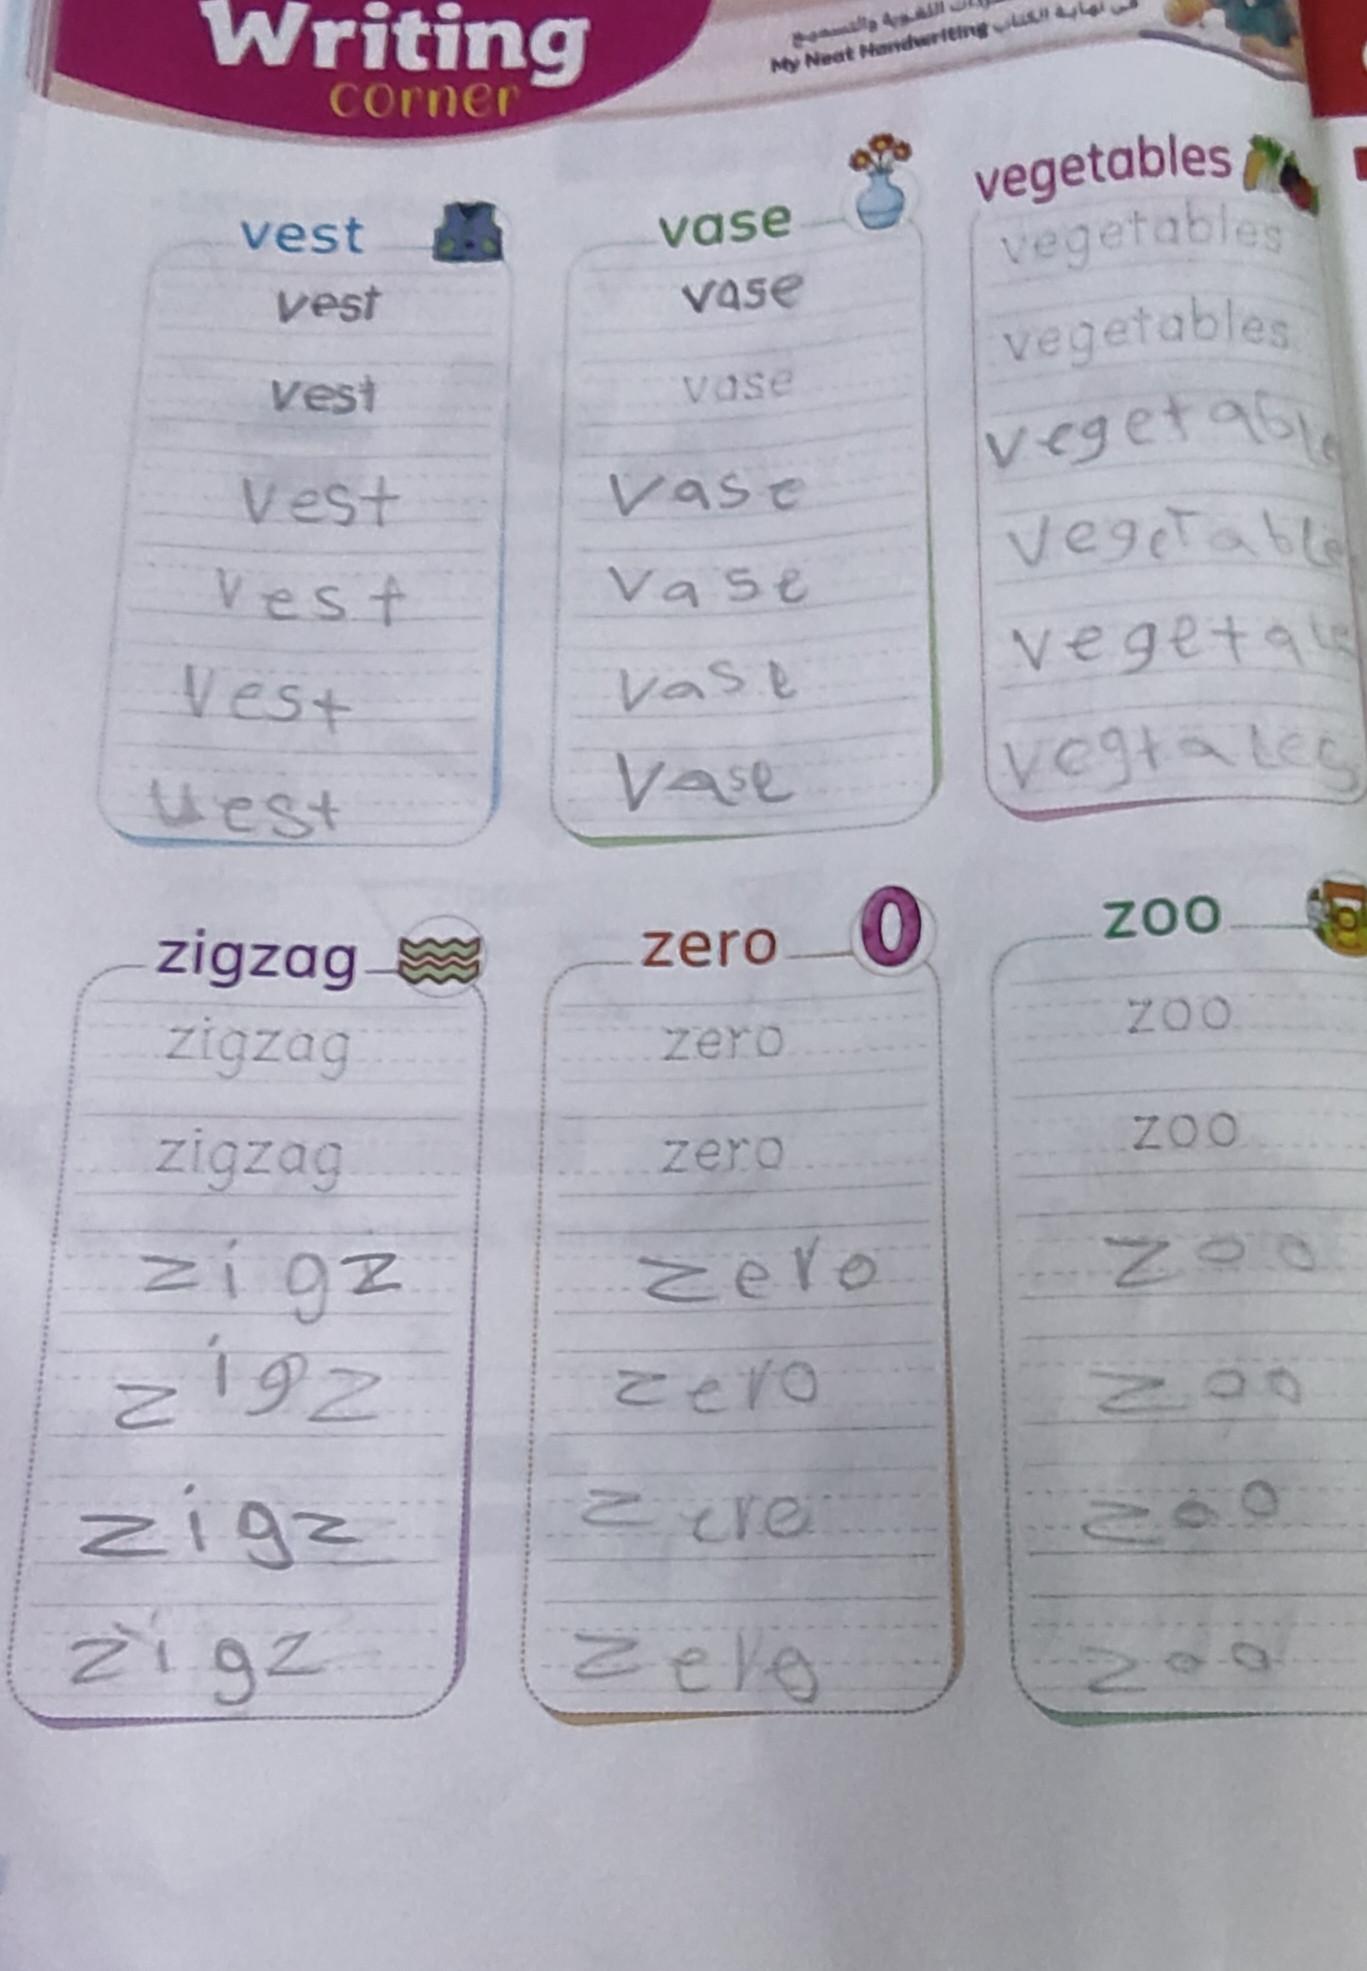 Writing
corner
في نهاية الكتاب My Neat Handwriting
vest
vest
vest
vest
vest
vest
uest
vase
vase
vase
vase
vase
vase
vase
vegetables
vegetables
vegetables
vegetable
vegetable
vegetales
vegtales
zigzag
zigzag
zigzag
zigz
zigz
zigz
zigz
zero
0
zero
zero
zero
zero
zero
zero
zoo
zoo
zoo
zoo
zoo
zoo
zoo